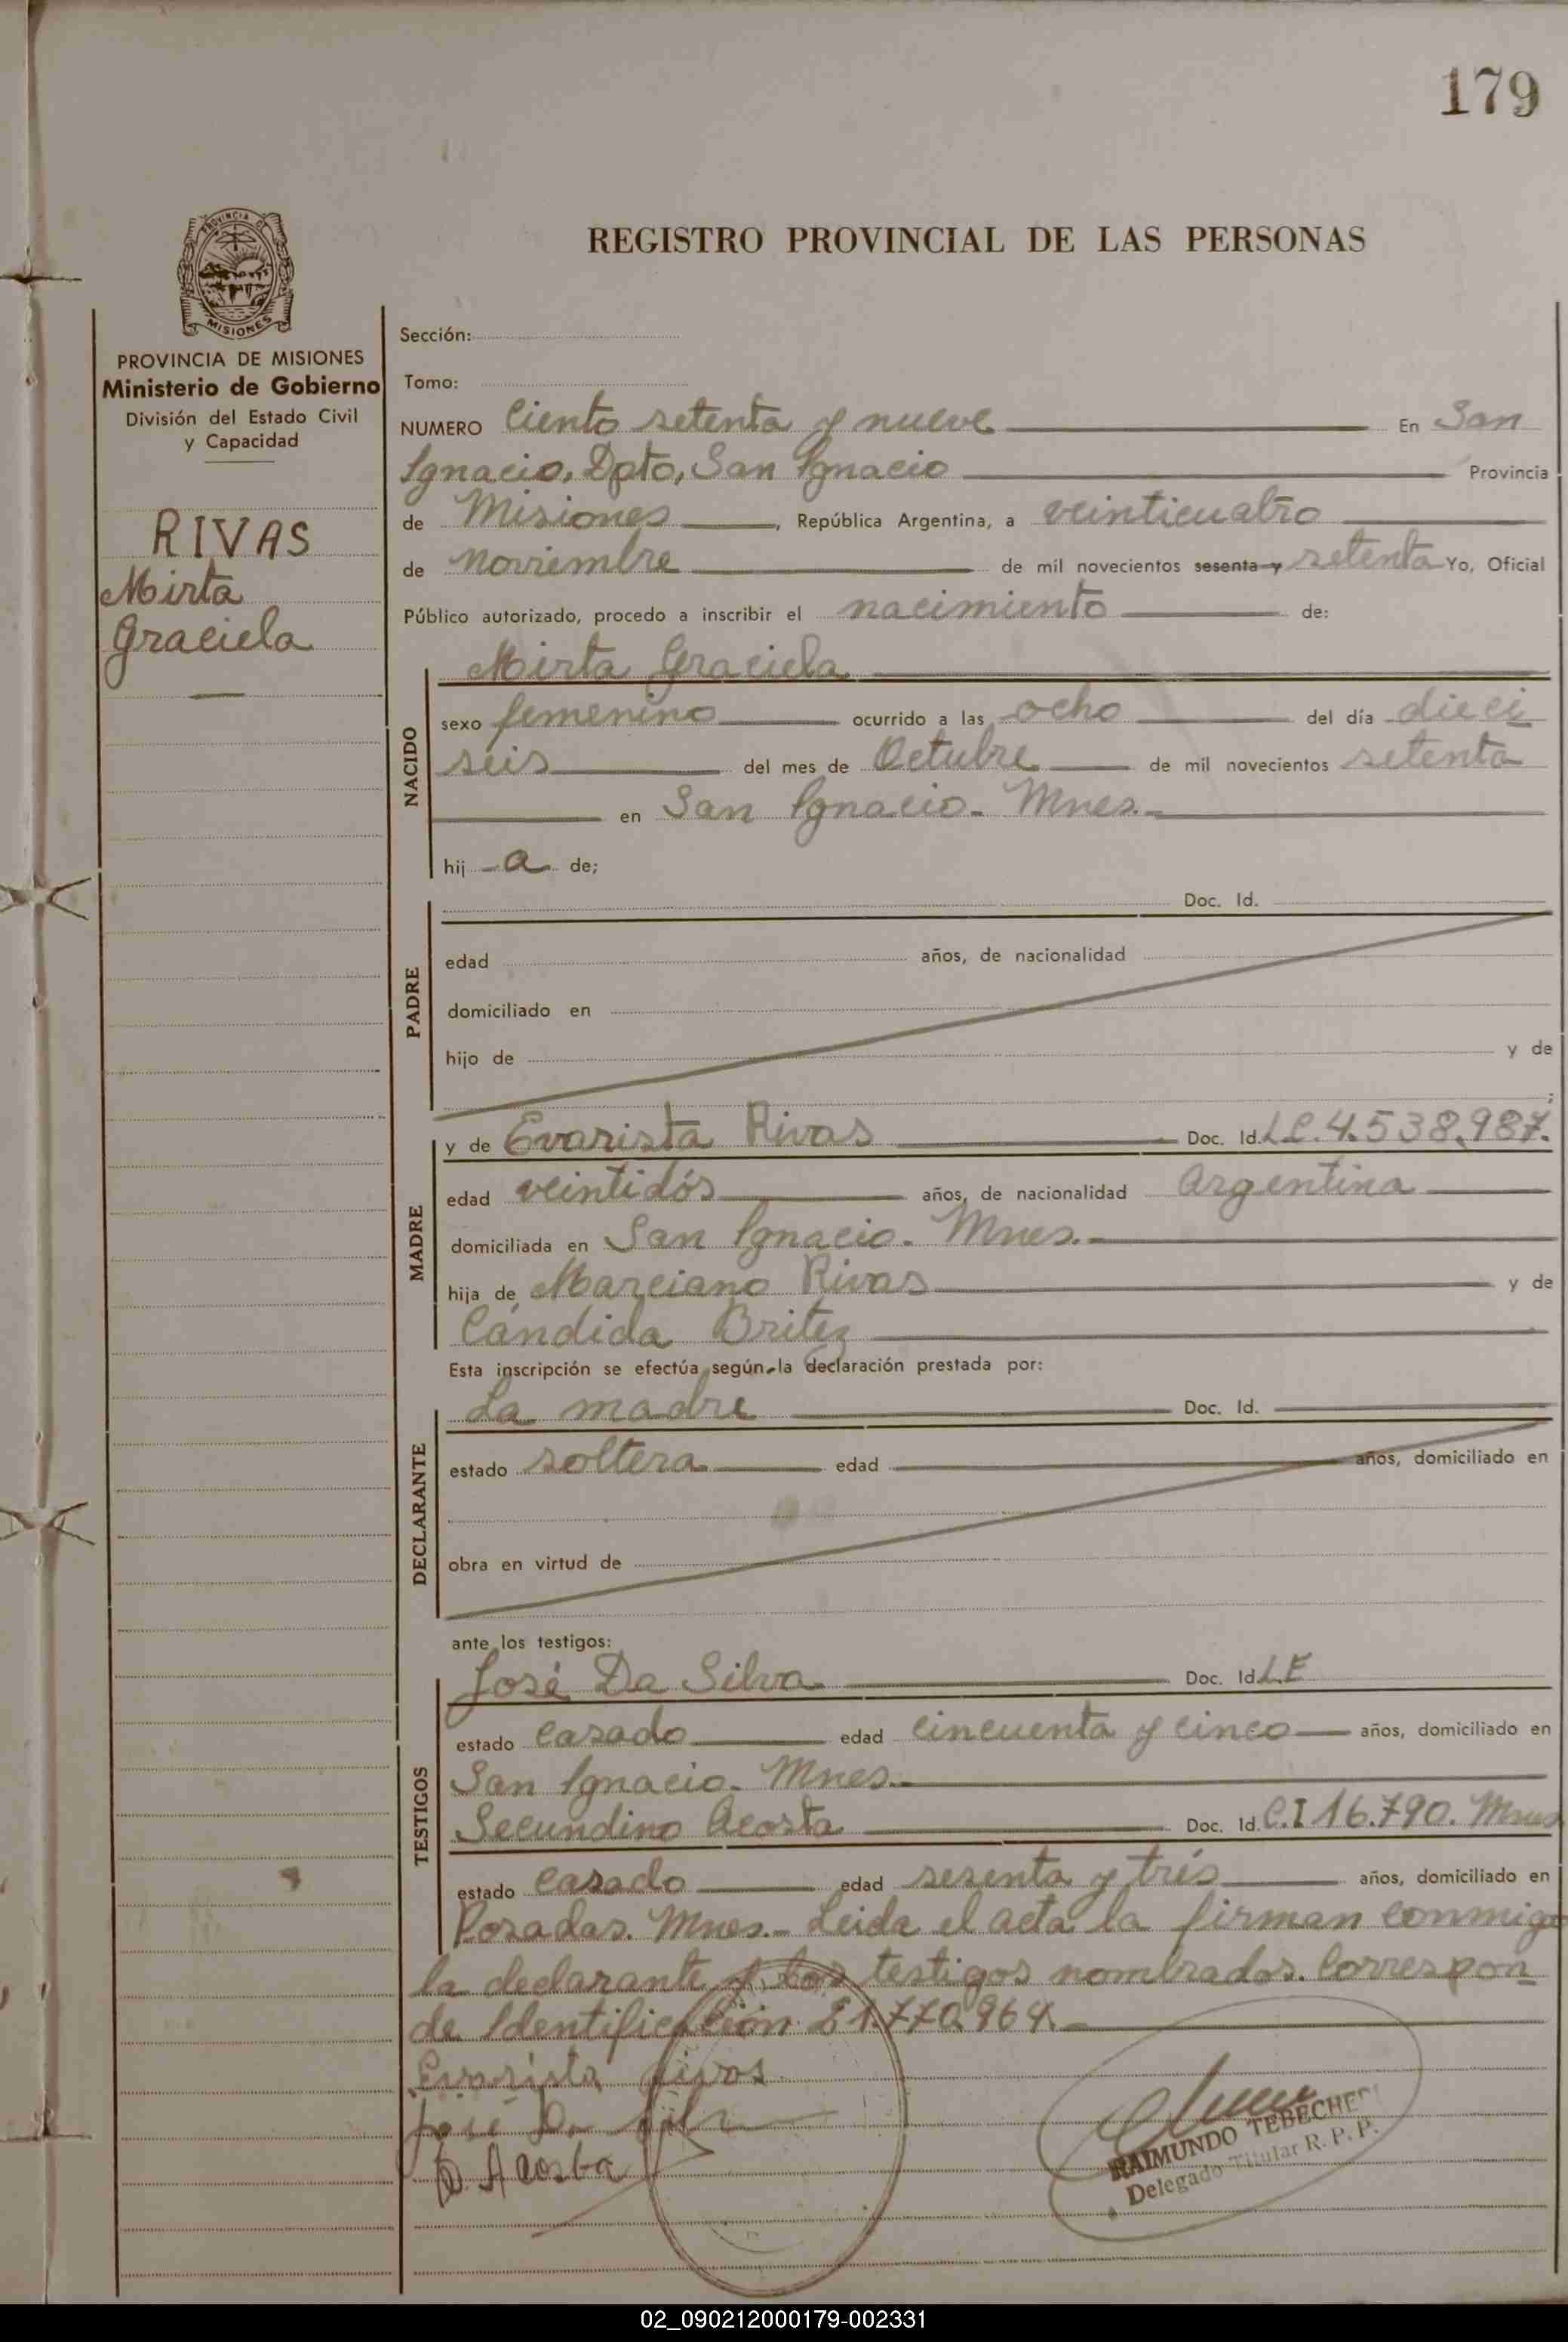 179
PROVINCIA DE
MISIONES
REGISTRO PROVINCIAL DE LAS PERSONAS
PROVINCIA DE MISIONES
Ministerio de Gobierno
División del Estado Civil
y Capacidad
RIVAS
Mirta
Graciela
Sección:
Tomo:
NUMERO Ciento setenta y nueve En San
Ignacio, Dpto, San Ignacio Provincia
de Misiones, República Argentina, a veinticuatro
de noviembre de mil novecientos sesenta y setenta Yo, Oficial
Público autorizado, procedo a inscribir el nacimiento de:
Mirta Graciela
NACIDO
sexo femenino ocurrido a las ocho del día dieci
seis del mes de Octubre de mil novecientos setenta
en San Ignacio. Mnes.
hij a de;
PADRE
Doc. Id.
edad años, de nacionalidad
domiciliado en
hijo de y de
;
MADRE
y de Evarista Rivas Doc. Id. LC. 4.538.987.
edad veintidós años, de nacionalidad Argentina
domiciliada en San Ignacio. Mnes.
hija de Marciano Rivas y de
Cándida Britez
Esta inscripción se efectúa según la declaración prestada por:
DECLARANTE
La madre Doc. Id.
estado soltera edad años, domiciliado en
obra en virtud de
ante los testigos:
TESTIGOS
José Da Silva Doc. Id. L.E
estado casado edad cincuenta y cinco años, domiciliado en
San Ignacio. Mnes.
Secundino Acosta Doc. Id. C.I 16.790. Mnes
estado casado edad sesenta y trés años, domiciliado en
Posadas. Mnes.- Leida el acta la firman conmigo
la declarante y los testigos nombrados. Correspon
de Identificación 21.770.964.
Evarista Rivas
José Da Silva
S. Acosta
RAIMUNDO
Delegado Titular R. P. P.
02_090212000179-002331